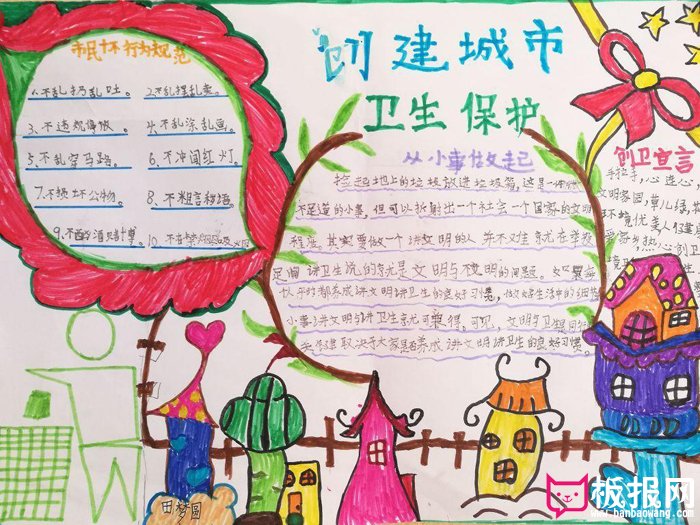 创建城市
卫生保护
市民十不行为规范
1.不乱扔乱吐。
2.不乱摆乱卖。
3、不违规停放。
4、不乱涂乱画。
5、不乱穿马路。
6、不冲闯红灯。
7、不损坏公物。
8、不粗言秽语。
9、不酗酒赌博。
10、不
从小事做起
捡起地上的垃圾放进垃圾箱,这是一件微
不足道的小事,但可以折射出一个社会一个国家的文明
程度。其实要做一个讲文明的人并不难,就在学校
讲卫生说的就是文明与不文明的问题。
养成讲文明讲卫生的良好习惯,做好生活中的细节
小事讲文明与讲卫生就可
取决于大家是否养成讲文明讲卫生的良好习惯。
创卫宣言
手拉手,心连心,
文明家园,
环境优美人人健康
爱家乡,热心创卫
田梦圆
板报网
www.banbaowang.com